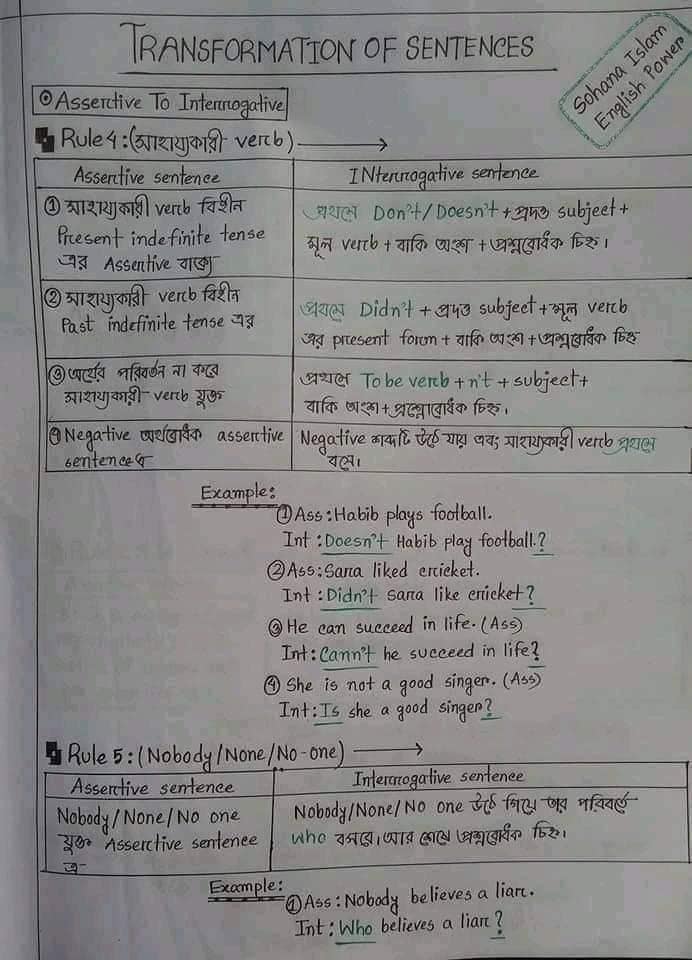 TRANSFORMATION OF SENTENCES
Sohana Islam
English Power
Assertive To Interrogative
Rule 4:(সাহায্যকারী verb)
Assertive sentence
INterrogative sentence
① সাহায্যকারী verb বিহীন
Present indefinite tense
এর Assertive বাক্যে
প্রথমে Don't/Doesn't + প্রদত্ত subject +
মূল verb + বাকি অংশ + প্রশ্নবোধক চিহ্ন।
② সাহায্যকারী verb বিহীন
Past indefinite tense এর
প্রথমে Didn't + প্রদত্ত subject + মূল verb
এর present form + বাকি অংশ + প্রশ্নবোধক চিহ্ন
③ অর্থের পরিবর্তন না করে
সাহায্যকারী verb যুক্ত
প্রথমে To be verb + n't + subject +
বাকি অংশ + প্রশ্নোবোধক চিহ্ন।
④ Negative অর্থবোধক assertive
sentence এ
Negative শব্দটি উঠে যায় এবং সাহায্যকারী verb প্রথমে
বসে।
Example:
① Ass : Habib plays football.
Int : Doesn't Habib play football.?
② Ass : Sara liked cricket.
Int : Didn't sara like cricket?
③ He can succeed in life. (Ass)
Int : Cann't he succeed in life?
④ She is not a good singer. (Ass)
Int : Is she a good singer?
Rule 5 : (Nobody/None/No-one)
Assertive sentence
Interrogative sentence
Nobody/None/No one
যুক্ত Assertive sentence
এ
Nobody/None/No one উঠে গিয়ে তার পরিবর্তে
who বসবে। আর শেষে প্রশ্নবোধক চিহ্ন।
Example:
① Ass : Nobody believes a liar.
Int : Who believes a liar?